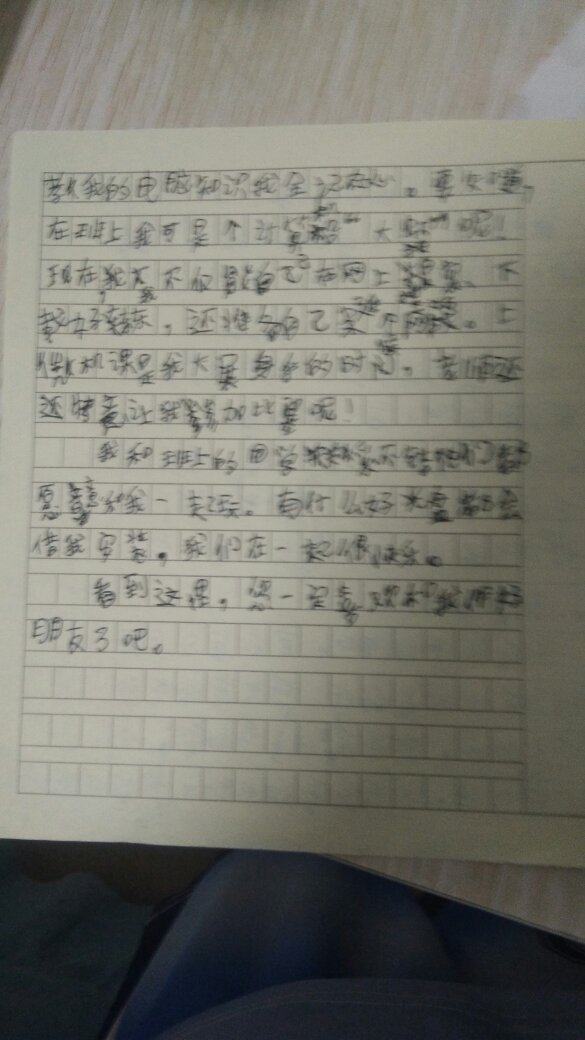 教我的电脑知识我全记在心。要知道,
在班上我可是个计算机"大师"呢!
现在,我不仅能自己在网上下
载好东东,还准备自己买个网站。上
微机课是我大显身手的时 。老师还
还特意让我参加比赛呢!
我和班上的同学 不错他们都
愿意和我一起玩。有什么好光盘都会
借我安装。我们在一起很快乐。
看到这里,您一定喜欢和我做好
朋友了吧。